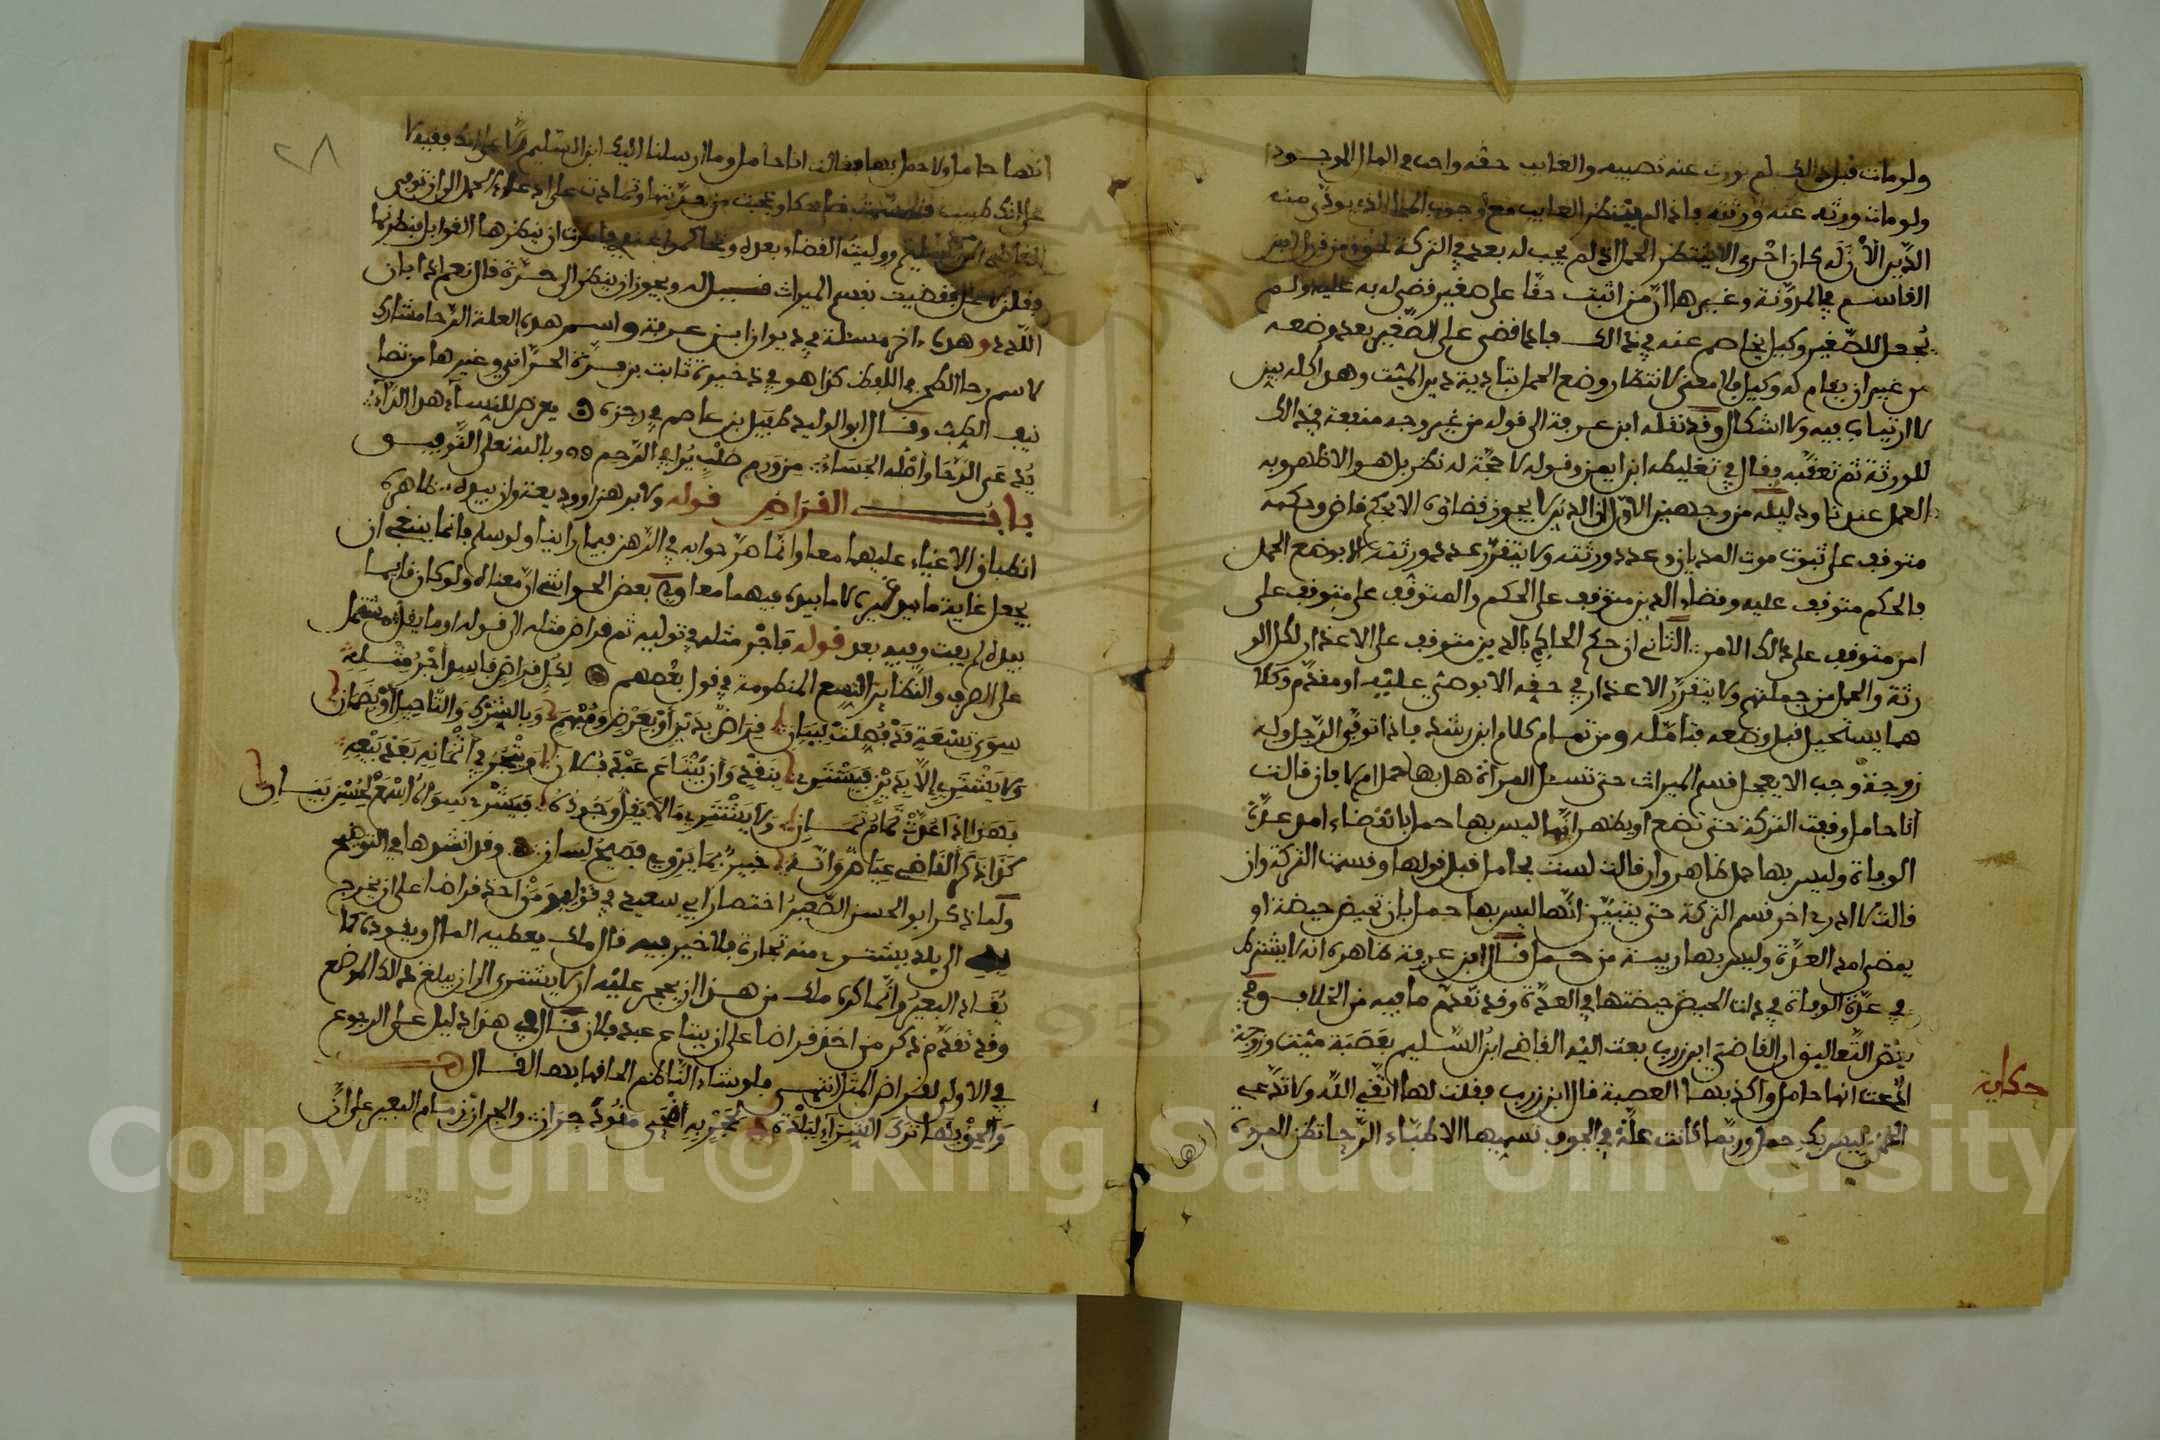 ولو مات قبل ذالك لم يورث عنه نصيبه والغايب حقه واجب في المال الموجود
ولو مات ورثه عنه ورثته فاذا لم ينتظر الغايب مع وجوب المال الذي يودى منه
الدين الآن له كان احرى الا ينتظر الحمل الذي لم يجب له بعد في التركة لخوف من قول ابن
القاسم في المدونة وغيرها ان من اثبت حقا على صغير قضي له به عليه ولم
يجعل للصغير وكيل يخاصم عنه في ذالك فاذا قضي على الصغير بعد وضعه
من غير ان يقام له وكيل فلا معنى لانتظار وضع الحمل بتادية دين الميت وهذا كله بين
لا ارتياب فيه ولا اشكال وقد نقله ابن عرفة الى قوله من غير وجه منفعة في ذالك
للورثة ثم تعقبه فقال في تغليطه ابن ايمن وقوله لا حجة له نظر بل هو الاظهر وبه
العمل عندنا ودليله من وجهين الاول ان الدين لا يجوز قضاؤه الا بحكم قاض وحكمه
متوقف على ثبوت موت المديان وعدد ورثته ولا يتقرر عدد ورثته الا بوضع الحمل
فالحكم متوقف عليه وقضاء الدين متوقف على الحكم والمتوقف على متوقف على
امر متوقف على ذالك الامر الثاني ان حكم الحاكم بالدين متوقف على الاعذار لكل الو
رثة والحمل من جملتهم ولا يتقرر الاعذار في حقه الا بوصي عليه او مقدم وكلا
هما يستحيل قبل وضعه فتامله ومن تمام كلام ابن رشد فاذا توفي الرجل وله
زوجة وجب الا يعجل قسم الميراث حتى تسئل المراة هل بها حمل ام لا فان قالت
انا حامل وقفت التركة حتى تضع او يظهر انها ليس بها حمل بانقضاء امد عدة
الوفاة وليس بها حمل ظاهر وان قالت لست بحامل قبل قولها وقسمت التركة وان
قالت لا ادري اخر قسم التركة حتى يتبين انها ليس بها حمل بان تحيض حيضة او
يمضي امد العدة وليس بها ريبة من حمل قال ابن عرفة ظاهره انه لا يشترط
في عدة الوفاة في ذات الحيض حيضتها في العدة وقد تقدم ما فيه من الخلاف وفي
ان القاضي ابن زرب بعث اليه القاضي ابن السليم بعصبة ميت وزوجة
ادعت انها حامل واكذبها العصبة قال ابن زرب فقلت لها اتقي الله ولا تدعي
ليس بك حمل وربما كانت علة في الجوف تسميها الاطباء الرحا تظن المرءة
حكاية
انها
٢٨
انها حامل ولا حمل بها فقالت انا حامل وما ارسلنا اليك ابن السليم الا على انك فقيه لا
على انك طبيب ضاحكا وعجبت من حدتها وتمادت على ادعاء الحمل الى ان توفي
القاضي ابن السليم ووليت القضاء بعده
فقضيت بقسم الميراث فسيل له ويجوز ان ينظر الى حرة قال نعم اذا بان
اللدد وهذه اخر مسئلة في ديوان ابن عرفة واسم هذه العلة الرحا مشارك
لاسم رحا الطحن في اللفظ كذا هو في ذخيرة ثابت بن قرة الحراني وغيرها من تصا
نيف الطب وقال ابو الوليد طفيل بن عاصم في رجزه يعرض للنساء هذا الداء
يدعى الرحا واصله الجساء من ورم صلب يرا في الرحم وبالله تعلى التوفيق
باب القراض قوله ولا بد هنا وديعة وان بيده ظاهره
انطباق الاغياء عليهما معا وانما هو جوابه في الرهن فيما راينا ولو سلم فانما ينبغي ان
يجعل غاية ما بيد غيره لا ما بيده فيهما معا وفي بعض الحواشي ان معناه ولو كان قائما
بيده لم يفت وفيه بعد قوله فاجر مثله في توليه ثم قراض مثله الى قوله او ما يقل مشتمل
على الصرف والنظاير التسع المنظومة في قول بعضهم لكل قراض فاسد اجر مثله
سوى تسعة قد فصلت ببيان قراض بدين او بعرض ومبهم وبالشرك والتاجيل او بضمان
ولا يشتري الا بدين فيشتري بنقد وان يبتاع عبد فلان ويتجر في اثمانه بعد بيعه
فهذا اذا عدت تمام ثمان ولا يشتري ما لا يقل وجوده فيشري سواه اسمع لحسن بيان
كذا ذكر القاضي عياض وانه خبير بما يروي فصيح لسان وقد انشدها في التوضيح
ولما ذكر ابو الحسن الصغير اختصار ابي سعيد في قوله ومن اخذ قراضا على ان يخرج
الى بلد يشتري منه تجارة فلا خير فيه قال ملك يعطيه المال ويقوده كما
يقاد البعير وانما كره ملك من هذا ان يحجر عليه ان لا يشتري الى ان يبلغ ذالك الموضع
وقد تقدم ذكر من اخذ قراضا على ان يبتاع عبد فلان قال في هذا دليل على الرجوع
في الاول لقراض المثل انتهى فلو شاء الناظم الحاقها بها لقال
والحق بها ترك الشراء لبلدة